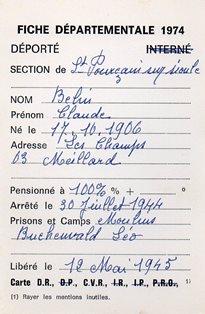 FICHE DÉPARTEMENTALE 1974
DÉPORTÉ INTERNÉ
SECTION de St Pourçain sur sioule
NOM Belin
Prénom Claude
Né le 17.10.1906
Adresse Les Champs
03 Meillard
Pensionné à 100% % + °
Arrêté le 30 Juillet 1944
Prisons et Camps Moulins
Buchenwald Léo
Libéré le 12 Mai 1945
Carte D.R., D.P., C.V.R., I.R., I.P., P.R.O., 1)
(1) Rayer les mentions inutiles.